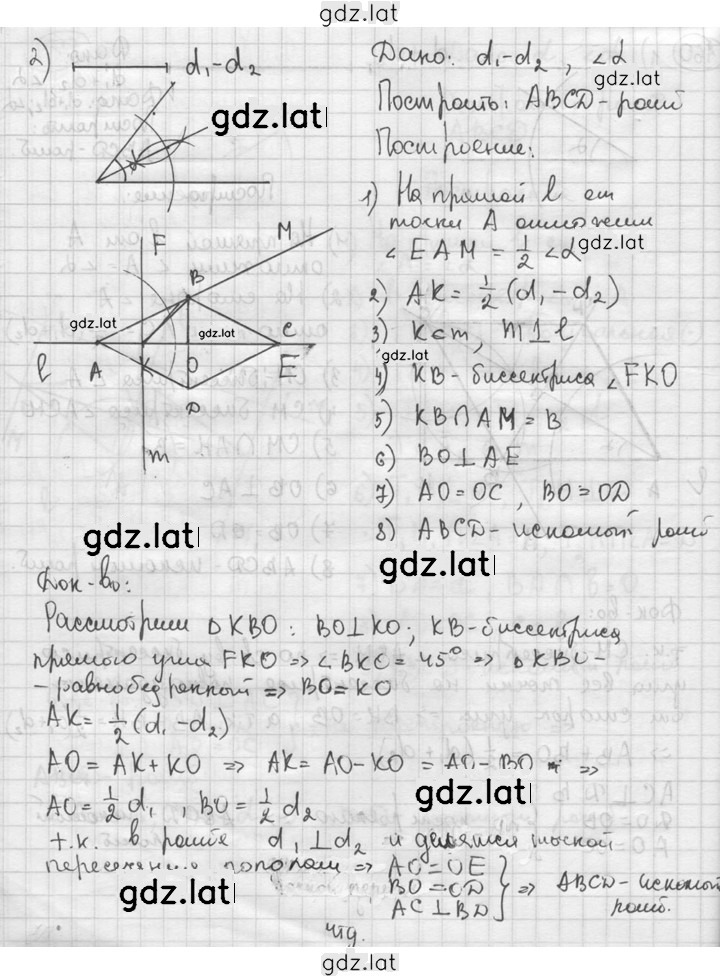 gdz.lat
2)
d₁-d₂
Дано: d₁-d₂, ∠α
gdz.lat
Построить: ABCD-ромб
gdz.lat
Построение:
1) На прямой l от
точки A отложим
∠EAM = 1/2 ∠α
gdz.lat
2) AK = 1/2 (d₁-d₂)
3) K∈m, m⊥l
gdz.lat
4) KB-биссектриса ∠FKO
5) KB∩AM=B
6) BO⊥AE
7) AO=OC, BO=OD
8) ABCD-искомый ромб
α
F
M
B
gdz.lat
gdz.lat
C
l
A
K
O
E
D
m
gdz.lat
gdz.lat
Док-во:
Рассмотрим △KBO: BO⊥KO; KB-биссектриса
прямого угла FKO ⇒ ∠BKO=45° ⇒ △KBO-
-равнобедренный ⇒ BO=KO
AK=1/2(d₁-d₂)
gdz.lat
AO = AK+KO ⇒ AK = AO-KO = AO-BO ⇒
gdz.lat
AO=1/2 d₁ BO=1/2 d₂
т.к. в ромбе d₁⊥d₂ и делятся точкой
пересечения пополам ⇒ AO=OE
BO=OD
AC⊥BD
⇒ ABCD-искомый
ромб.
gdz.lat
gdz.lat
чтд.
gdz.lat